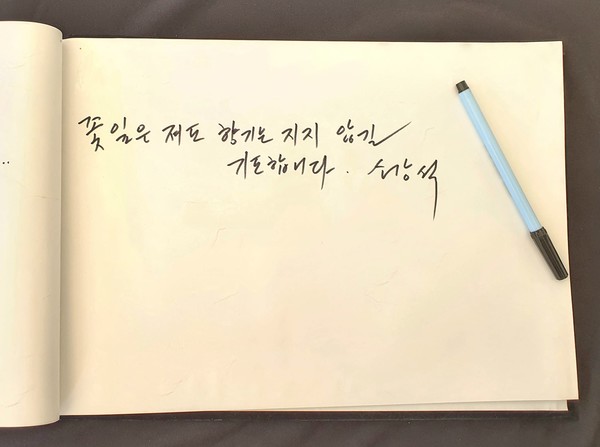 꽃잎은 져도 향기는 지지 않길
기도합니다.